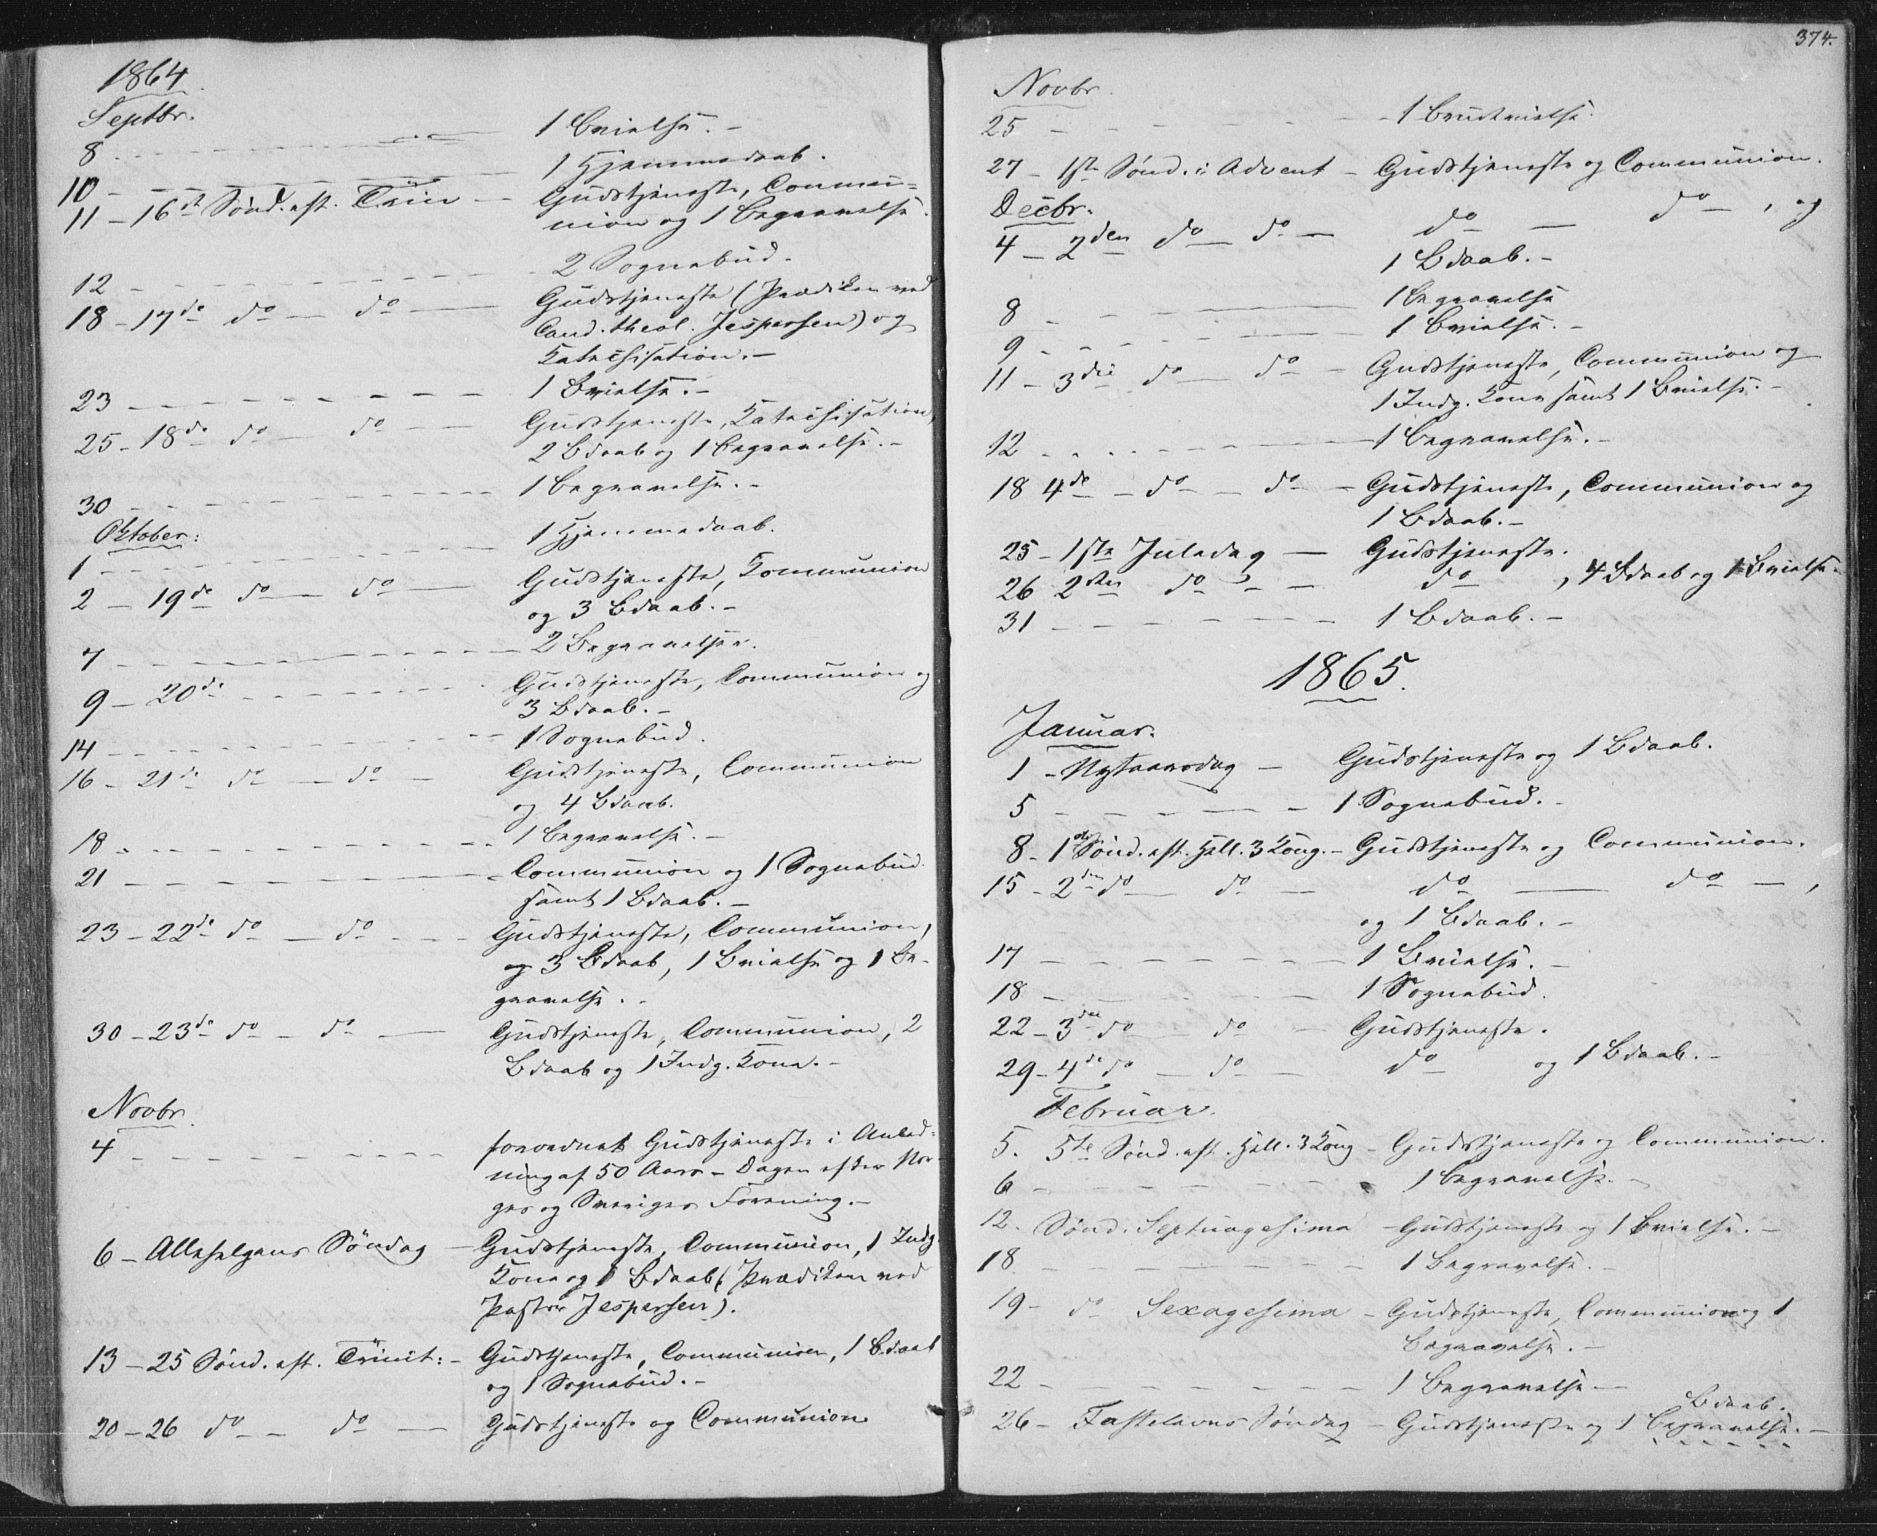 1864.
Septbr.
8 - - - 1 Bvielse. -
10 - - - 1 Hjemmedaab.
11 - 16de Sønd. eft. Trin - Gudstjeneste, Commu=
nion og 1 Begravelse.
12 - - - 2 Sognebud.
18 - 17de do - do - Gudstjeneste (Prædiken ved
Cand. theol. Jespersen) og
Katechisation. -
23 - - - 1 Bvielse. -
25 - 18de do - do - Gudstjeneste, Katechisation,
2 Bdaab og 1 Begravelse. -
30 - - - 1 Begravelse. -
Oktober:
1 - - - 1 Hjemmedaab.
2 - 19de do - do - Gudstjeneste, Kommunion
og 3 Bdaab. -
7 - - - 2 Begravelser.
9 - 20de - - - Gudstjeneste, Communion og
3 Bdaab. -
14 - - - 1 Sognebud.
16 - 21de do - do - Gudstjeneste, Communion
og 4 Bdaab.
18 - - - 1 Begravelse. -
21 - - - Communion og 1 Sognebud
samt 1 Bdaab. -
23 - 22de do - do - Gudstjeneste, Communion,
og 3 Bdaab, 1 Bvielse og 1 Be-
gravelse. -
30 - 23de do - do - Gudstjeneste, Communion, 2
Bdaab og 1 Indg. Kone. -
Novbr.
4 - - - forordnet Gudstjeneste i Anled=
ning af 50 Aars-Dagen efter Nor-
ges og Sveriges Forening. -
6 - Allehelgens Søndag - Gudstjeneste, Communion, 1 Indg.
Kone og 1 Bdaab (Prædiken ved
Pastor Jespersen).
13 - 25 Sønd. eft. Trinit: - Gudstjeneste, Communion, 1 Bdaab
og 1 Sognebud. -
20 - 26 do - do - Gudstjeneste og Communion
374.
Novbr.
25 - - - 1 Brudvielse.
27 - 1ste Sønd. i Advent - Gudstjeneste og Communion.
Decbr.
4 - 2den do - do - do - do - , og
1 Bdaab. -
8 - - - 1 Begravelse
9 - - - 1 Bvielse. -
11 - 3die do - do - Gudstjeneste, Communion og
1 Indg. Kone samt 1 Bvielse. -
12 - - - 1 Begravelse. -
18 4de - do - do - Gudstjeneste, Communion og
1 Bdaab. -
25 - 1ste Juledag - Gudstjeneste.
26 2den do - - do , 4 Bdaab og 1 Bvielse. -
31 - - - 1 Bdaab. -
1865.
Januar.
1 - Nytaarsdag - Gudstjeneste og 1 Bdaab.
5 - - - 1 Sognebud. -
8 - 1ste Sønd. eft. Hell. 3 Kong. - Gudstjeneste og Communion.
15 - 2den do - do - do - do - ,
og 1 Bdaab. -
17 - - - 1 Bvielse. -
18 - - - 1 Sognebud.
22 - 3die do - do - Gudstjeneste.
29 - 4de do - do - do og 1 Bdaab. -
Februar.
5. 5te Sønd. eft. Hell. 3 Kong - Gudstjeneste og Communion.
6 - - - 1 Begravelse. -
12. Sønd. Septuagesima - Gudstjeneste og 1 Bvielse. -
18 - - - 1 Begravelse. -
19 - do Sexagesima - Gudstjeneste, Communion og 1
Begravelse. -
22 - - - 1 Begravelse -
Bdaab.
26 - Fastelavns Søndag - Gudstjeneste og 1 Begravelse. -